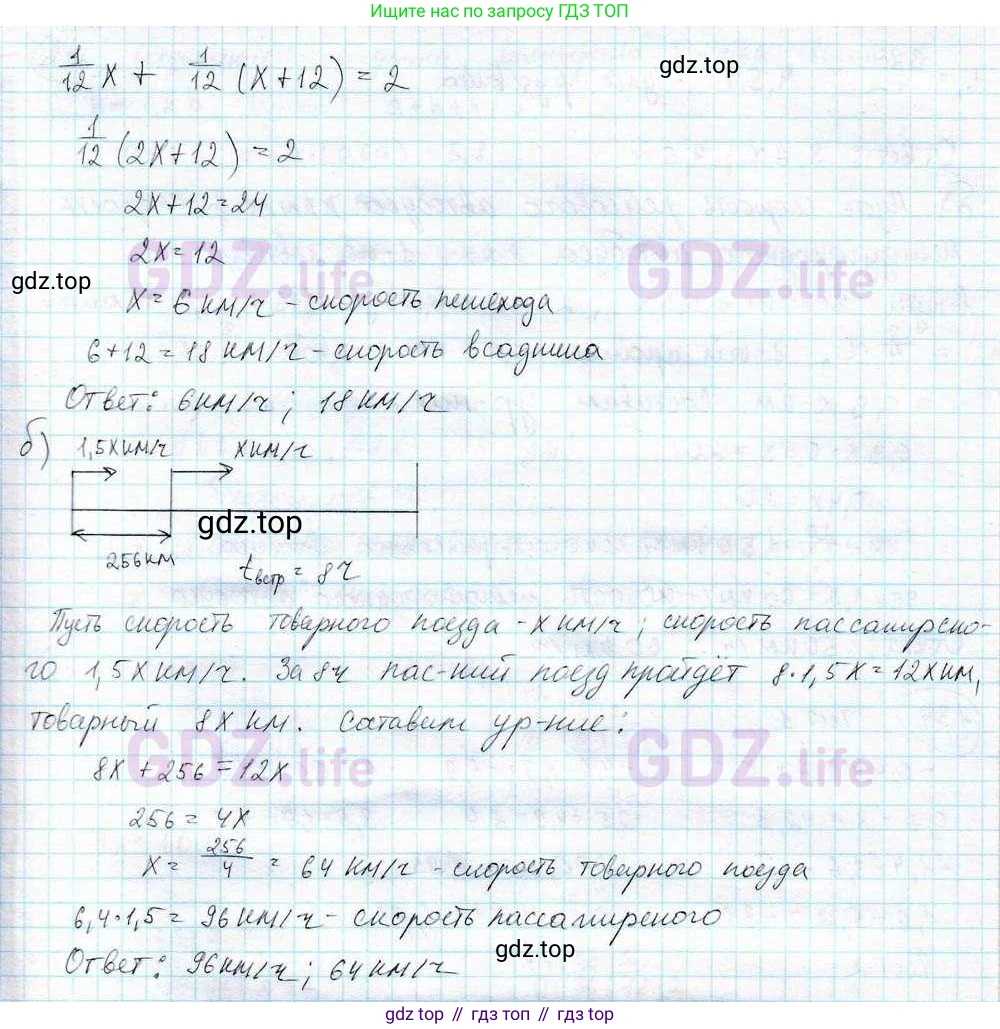 Ищите нас по запросу ГДЗ ТОП
1/12 x + 1/12 (x+12) = 2
gdz.top
1/12 (2x+12) = 2
2x+12=24
2x=12
GDZ.life GDZ.life
gdz.top
x= 6 км/ч - скорость пешехода
6+12 = 18 км/ч - скорость всадника
Ответ: 6км/ч ; 18 км/ч
б) 1,5x км/ч x км/ч
gdz.top
256 км tвстр = 8ч
Пусть скорость товарного поезда - x км/ч, скорость пассажирско-
го 1,5x км/ч. За 8ч пас-кий поезд пройдёт 8·1,5x=12x км,
товарный 8x км. Составим ур-ние:
GDZ.life GDZ.life
8x + 256 = 12x
256 = 4x
x = 256/4 = 64 км/ч - скорость товарного поезда
6,4·1,5 = 96 км/ч - скорость пассажирского
gdz.top
Ответ: 96км/ч ; 64 км/ч
gdz.top // гдз топ // gdz.top